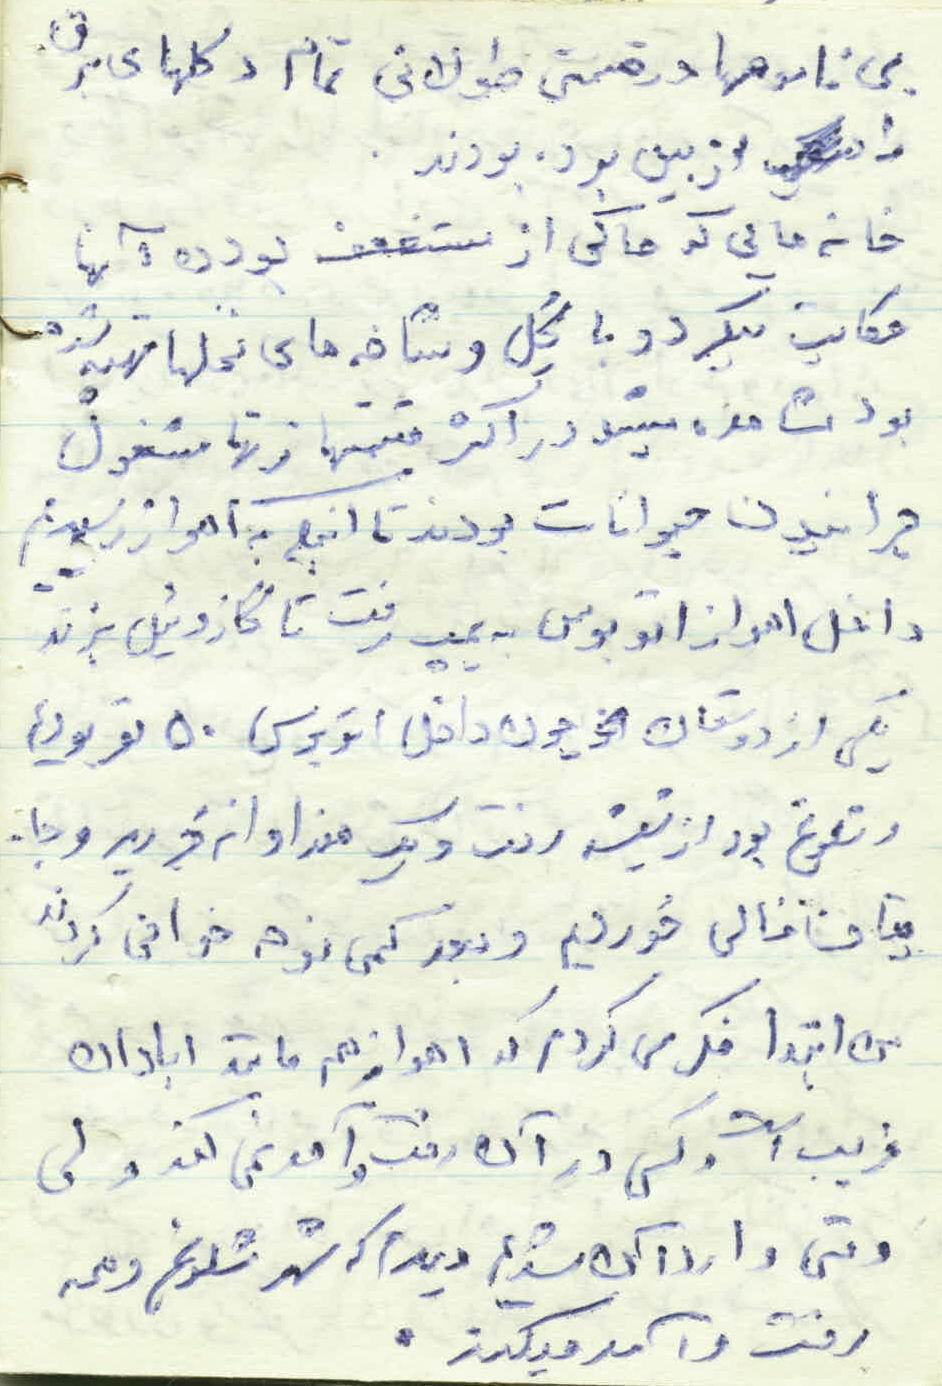 بی ناموسها در قسمتی طولانی تمام دکلهای برق
را از بین برده بودند.
خانه هایی که حاکی از مستضعف بودن آنها
حکایت میکرد و با گِل و شاخه های نخلها تهیه شده
بود مشاهده میشد در اکثر قسمتها زنها مشغول
چرانیدن حیوانات بودند تا اینکه به اهواز رسیدیم
داخل اهواز اتوبوس به پمپ رفت تا گازوئیل بزند
یکی از دوستان چون داخل اتوبوس ۵۰ نفر بودیم
و شلوغ بود از شیشه رفت و یک هندوانه خرید و جا
خالی خوردیم و بعد کمی نوحه خوانی کردند
من ابتدا فکر می کردم که اهواز هم مانند ابادان
غریب است و کسی در آن رفت و آمد نمی کند ولی
وقتی وارد آن شدیم دیدم که شهر شلوغ و همه
رفت و آمد میکنند.